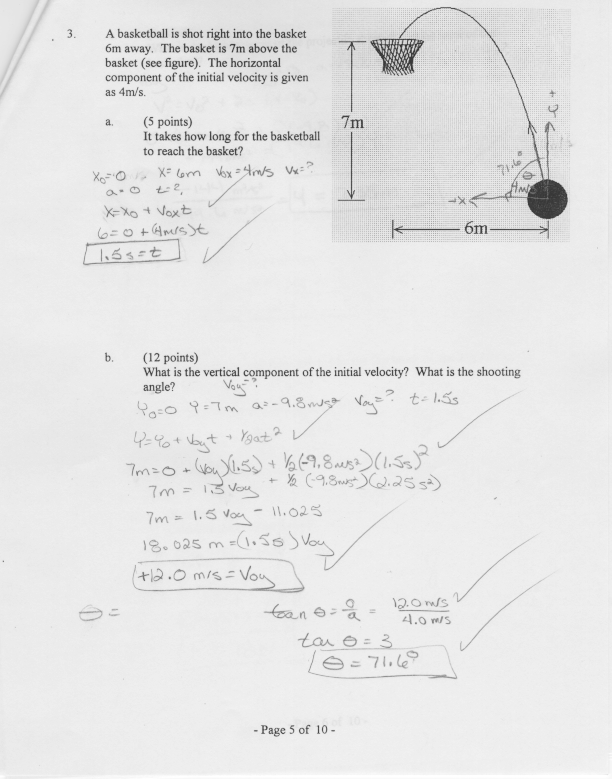 3. A basketball is shot right into the basket
6m away. The basket is 7m above the
basket (see figure). The horizontal
component of the initial velocity is given
as 4m/s.
a. (5 points)
It takes how long for the basketball
to reach the basket?
X₀=0 X=6m V₀x=4m/s Vx=?
a=0 t=?
X=X₀ + V₀xt
6=0+(4m/s)t
1.5s=t
7m
6m
71.6°
θ
4m/s
+X
Y +
b. (12 points)
What is the vertical component of the initial velocity? What is the shooting
angle?
V₀y=?
Y₀=0 Y=7m a=-9.8m/s² V₀y=? t=1.5s
Y=Y₀ + V₀yt + ½at²
7m=0+(V₀y)(1.5s) + ½(-9.8m/s²)(1.5s)²
7m = 1.5V₀y + ½(-9.8m/s²)(2.25s²)
7m = 1.5V₀y - 11.025
18.025 m=(1.5s)V₀y
+12.0 m/s=V₀y
θ = tan θ = o/a = 12.0m/s / 4.0 m/s
tan θ = 3
θ = 71.6°
- Page 5 of 10 -